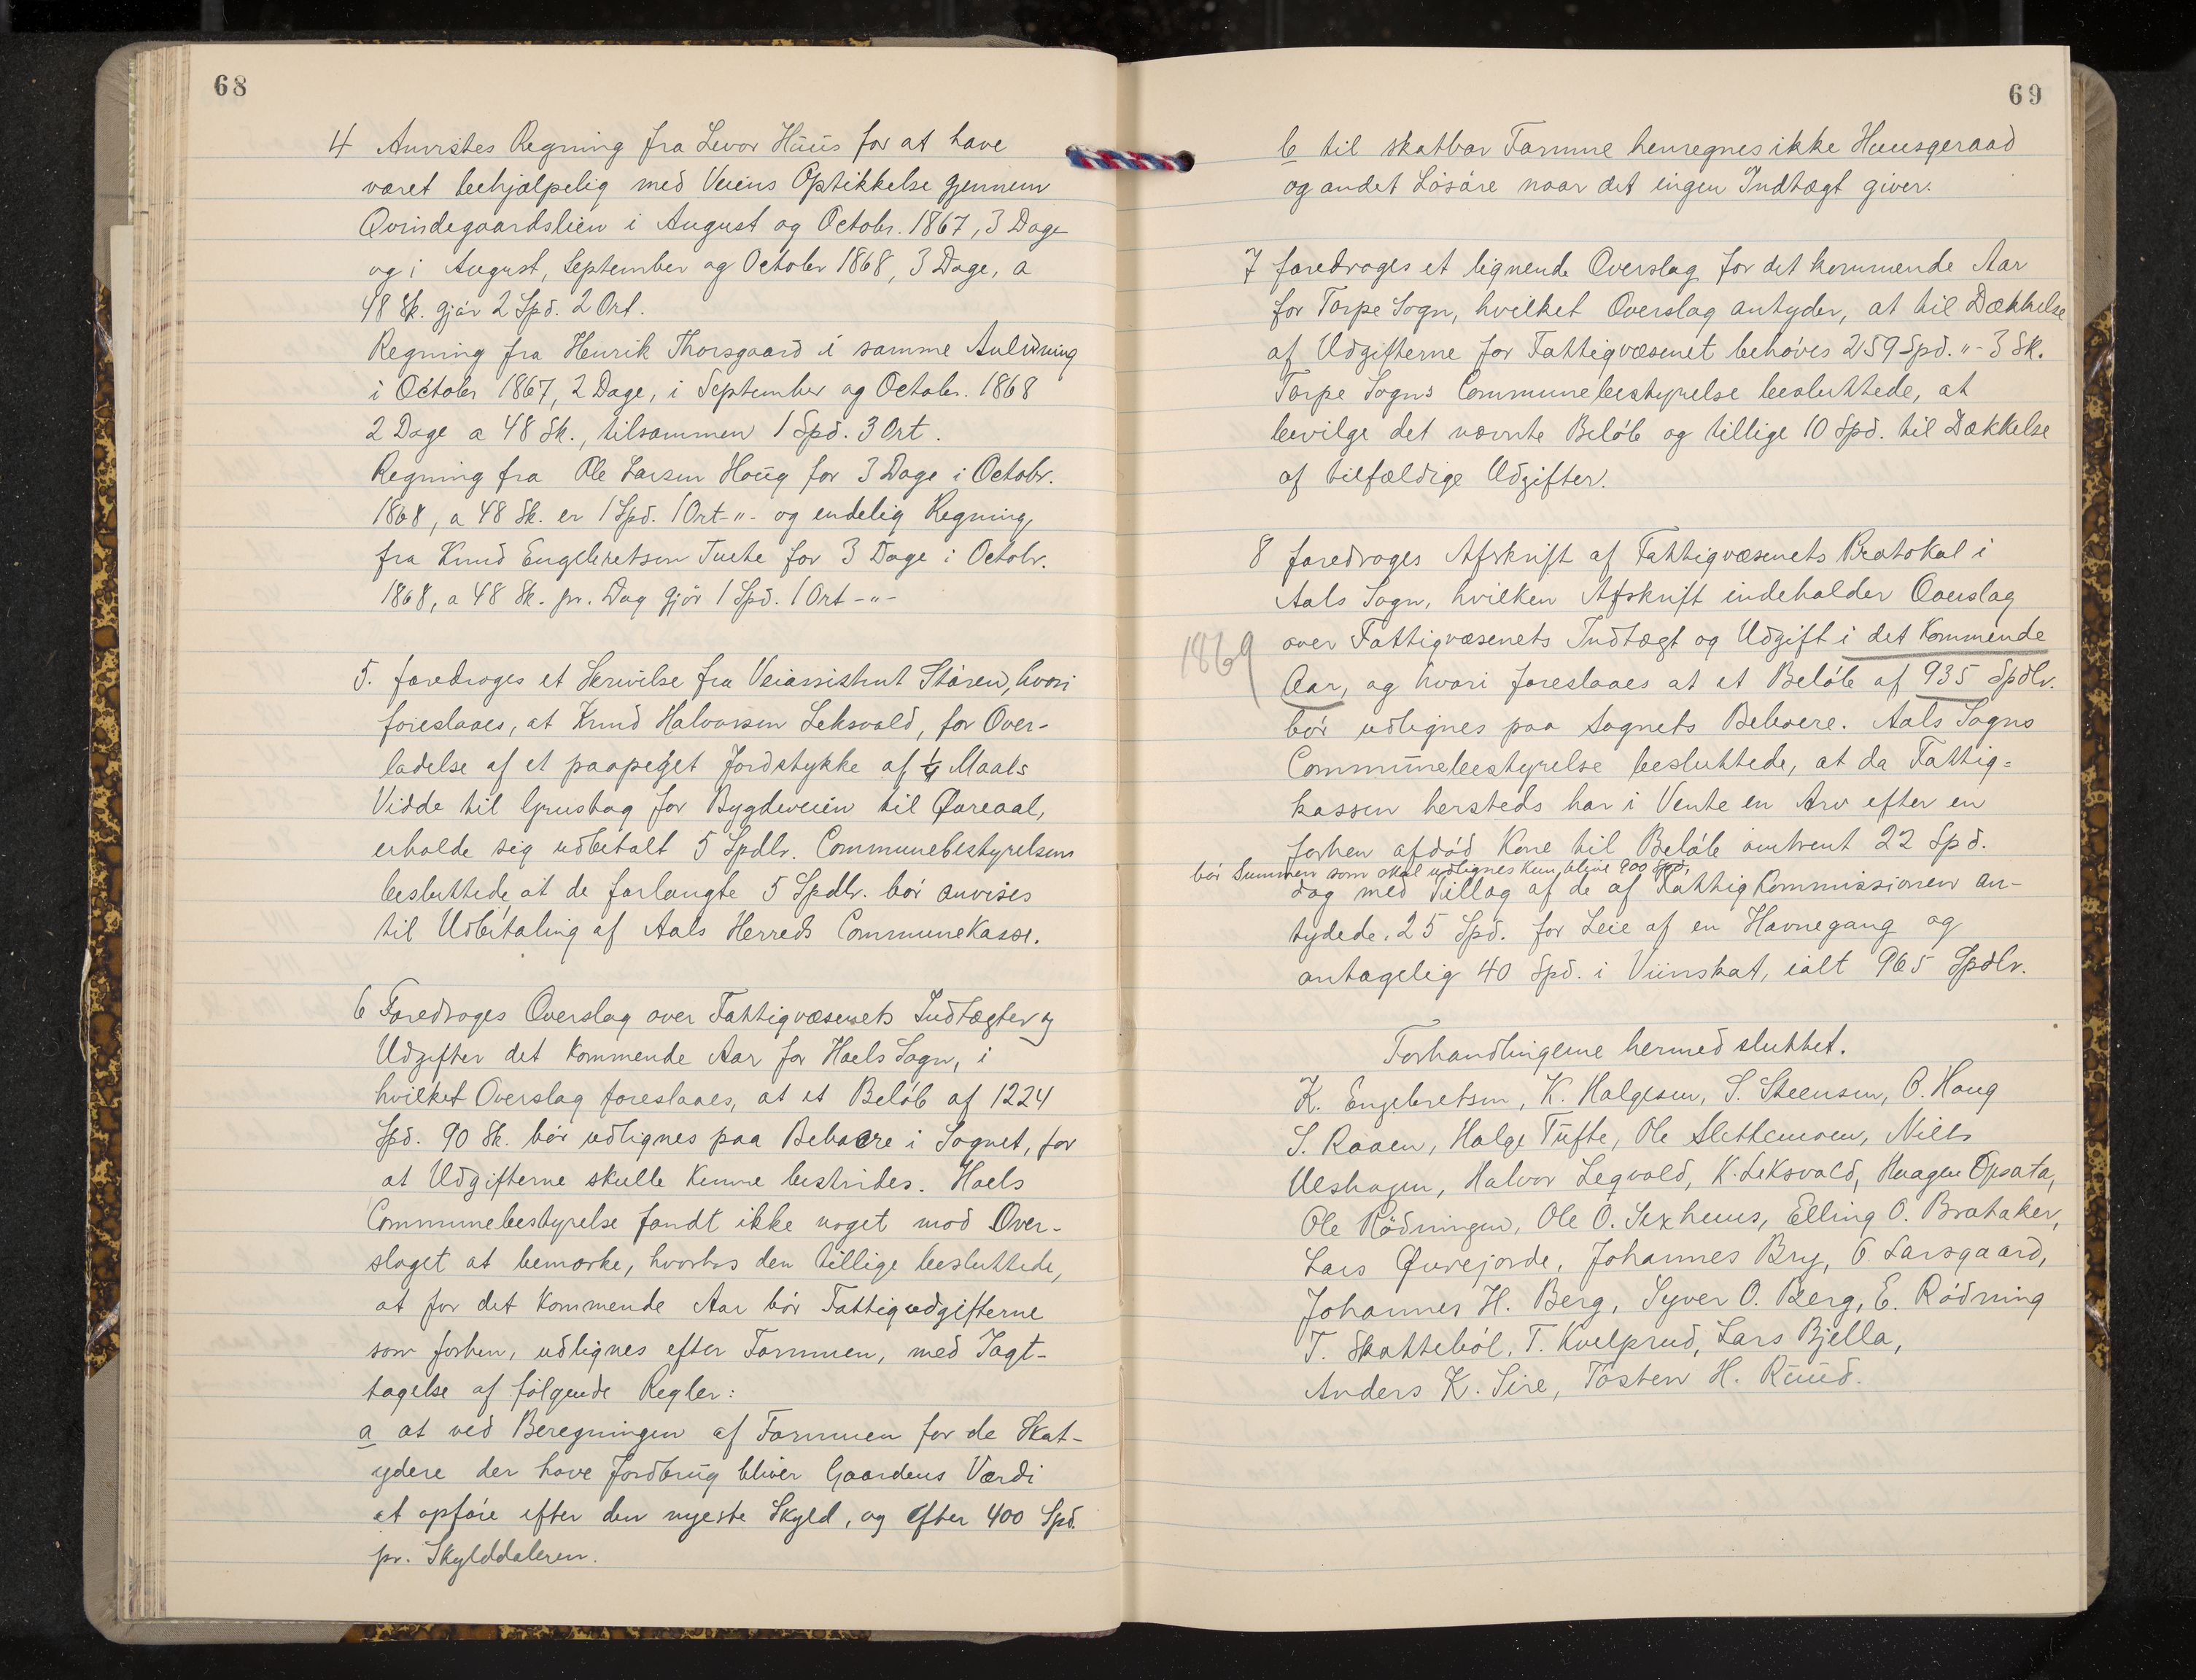 68
4 Anvistes Regning fra Levor Hüüs for at have
været behjælpelig med Veiens Optikkelse gjennem
Qvindegaardslien i August og Octobr. 1867, 3 Dage
og i August, September og October 1868, 3 Dage, a
48 Sk. gjör 2 Spd. 2 Ort.
Regning fra Henrik Thorsgaard i samme Anledning
i Octobr 1867, 2 Dage, i September og Octobr. 1868
2 Dage a 48 Sk., tilsammen 1 Spd. 3 Ort.
Regning fra Ole Larsen Houg for 3 Dage i Octobr.
1868, a 48 Sk. er 1 Spd. 1 Ort -"- og endelig Regning
fra Knud Engebretsen Tuete for 3 Dage i Octobr.
1868, a 48 Sk. pr. Dag gjör 1 Spd. 1 Ort -"-
5. foredroges et Skrivelse fra Veiassistent Stören, hvori
foreslaaes, at Knud Halvorsen Leksvold, for Over-
ladelse af et paapeget Jordstykke af 1/4 Maals
Vidde til Grustag for Bygdeveien til Qvreaal,
erholde sig udbetalt 5 Spdlr. Communebestyrelsen
besluttede, at de forlangte 5 Spdlr. bör anvises
til Udbetaling af Aals Herreds Communekasse.
6 Foredroges Overslag over Fattigvæsenets Indtægter og
Udgifter det kommende Aar for Hols Sogn, i
hvilket Overslag foreslaaes, at et Belöb af 1224
Spd. 90 Sk. bör udlignes paa Beboere i Sognet, for
at Udgifterne skulle kunne bestrides. Hols
Communebestyrelse fandt ikke noget mod Over-
slaget at bemærke, hvorhos den tillige besluttede,
at for det kommende Aar bör Fattigudgifterne
som forhen, udlignes efter Formuen, med Iagt-
tagelse af fölgende Regler:
a at ved Beregningen af Formuen for de Skat-
ydere der have Jordbrug bliver Gaardens Værdi
at opföre efter den nyeste Skyld, og efter 400 Spd.
pr. Skylddaleren.
69
b til skatbar Formue henregnes ikke Huusgeraad
og andet Lösöre naar det ingen Indtægt giver.
7 foredroges et lignende Overslag for det kommende Aar
for Torpe Sogn, hvilket Overslag antyder, at til Dækkelse
af Udgifterne for Fattigvæsenet behöves 259 Spd. "- 3 Sk.
Torpe Sogns Communebestyrelse besluttede, at
bevilge det nævnte Belöb og tillige 10 Spd. til Dækkelse
af tilfældige Udgifter.
8 foredroges Afskrift af Fattigvæsenets Protokol i
Aals Sogn, hvilken Afskrift indeholder Overslag
over Fattigvæsenets Indtægt og Udgift i det kommende
1869
Aar, og hvori foreslaaes at et Belöb af 935 Spdlr.
bör udlignes paa Sognets Beboere. Aals Sogns
Communebestyrelse besluttede, at da Fattig=
kassen hersteds har i Vente en Arv efter en
forhen afdöd Kone til Belöb omtrent 22 Spd.
bör Summen som skal udlignes kun blive 900 Spd,
dog med Tillæg af de af Fattigkommissionen an-
tydede. 25 Spd. for Leie af en Havnegang og
antagelig 40 Spd. i Viinskat, ialt 965 Spdlr.
Forhandlingerne hermed sluttet.
K. Engebretsen, K. Halgesen, S. Steensen, O. Houg
S. Raaen, Halge Tüfte, Ole Slettemoen, Niels
Uleshagen, Halvor Leqvold, K. Leksvold, Haagen Opsata,
Ole Rödningen, Ole O. Sexhuus, Elling O. Brataker,
Lars Qvrejorde, Johannes Bry, O. Larsgaard,
Johannes H. Berg, Syver O. Berg, E. Rödning
T. Skatteböl, T. Kvelprud, Lars Bjella,
Anders K. Sire, Tosten H. Rüüd.